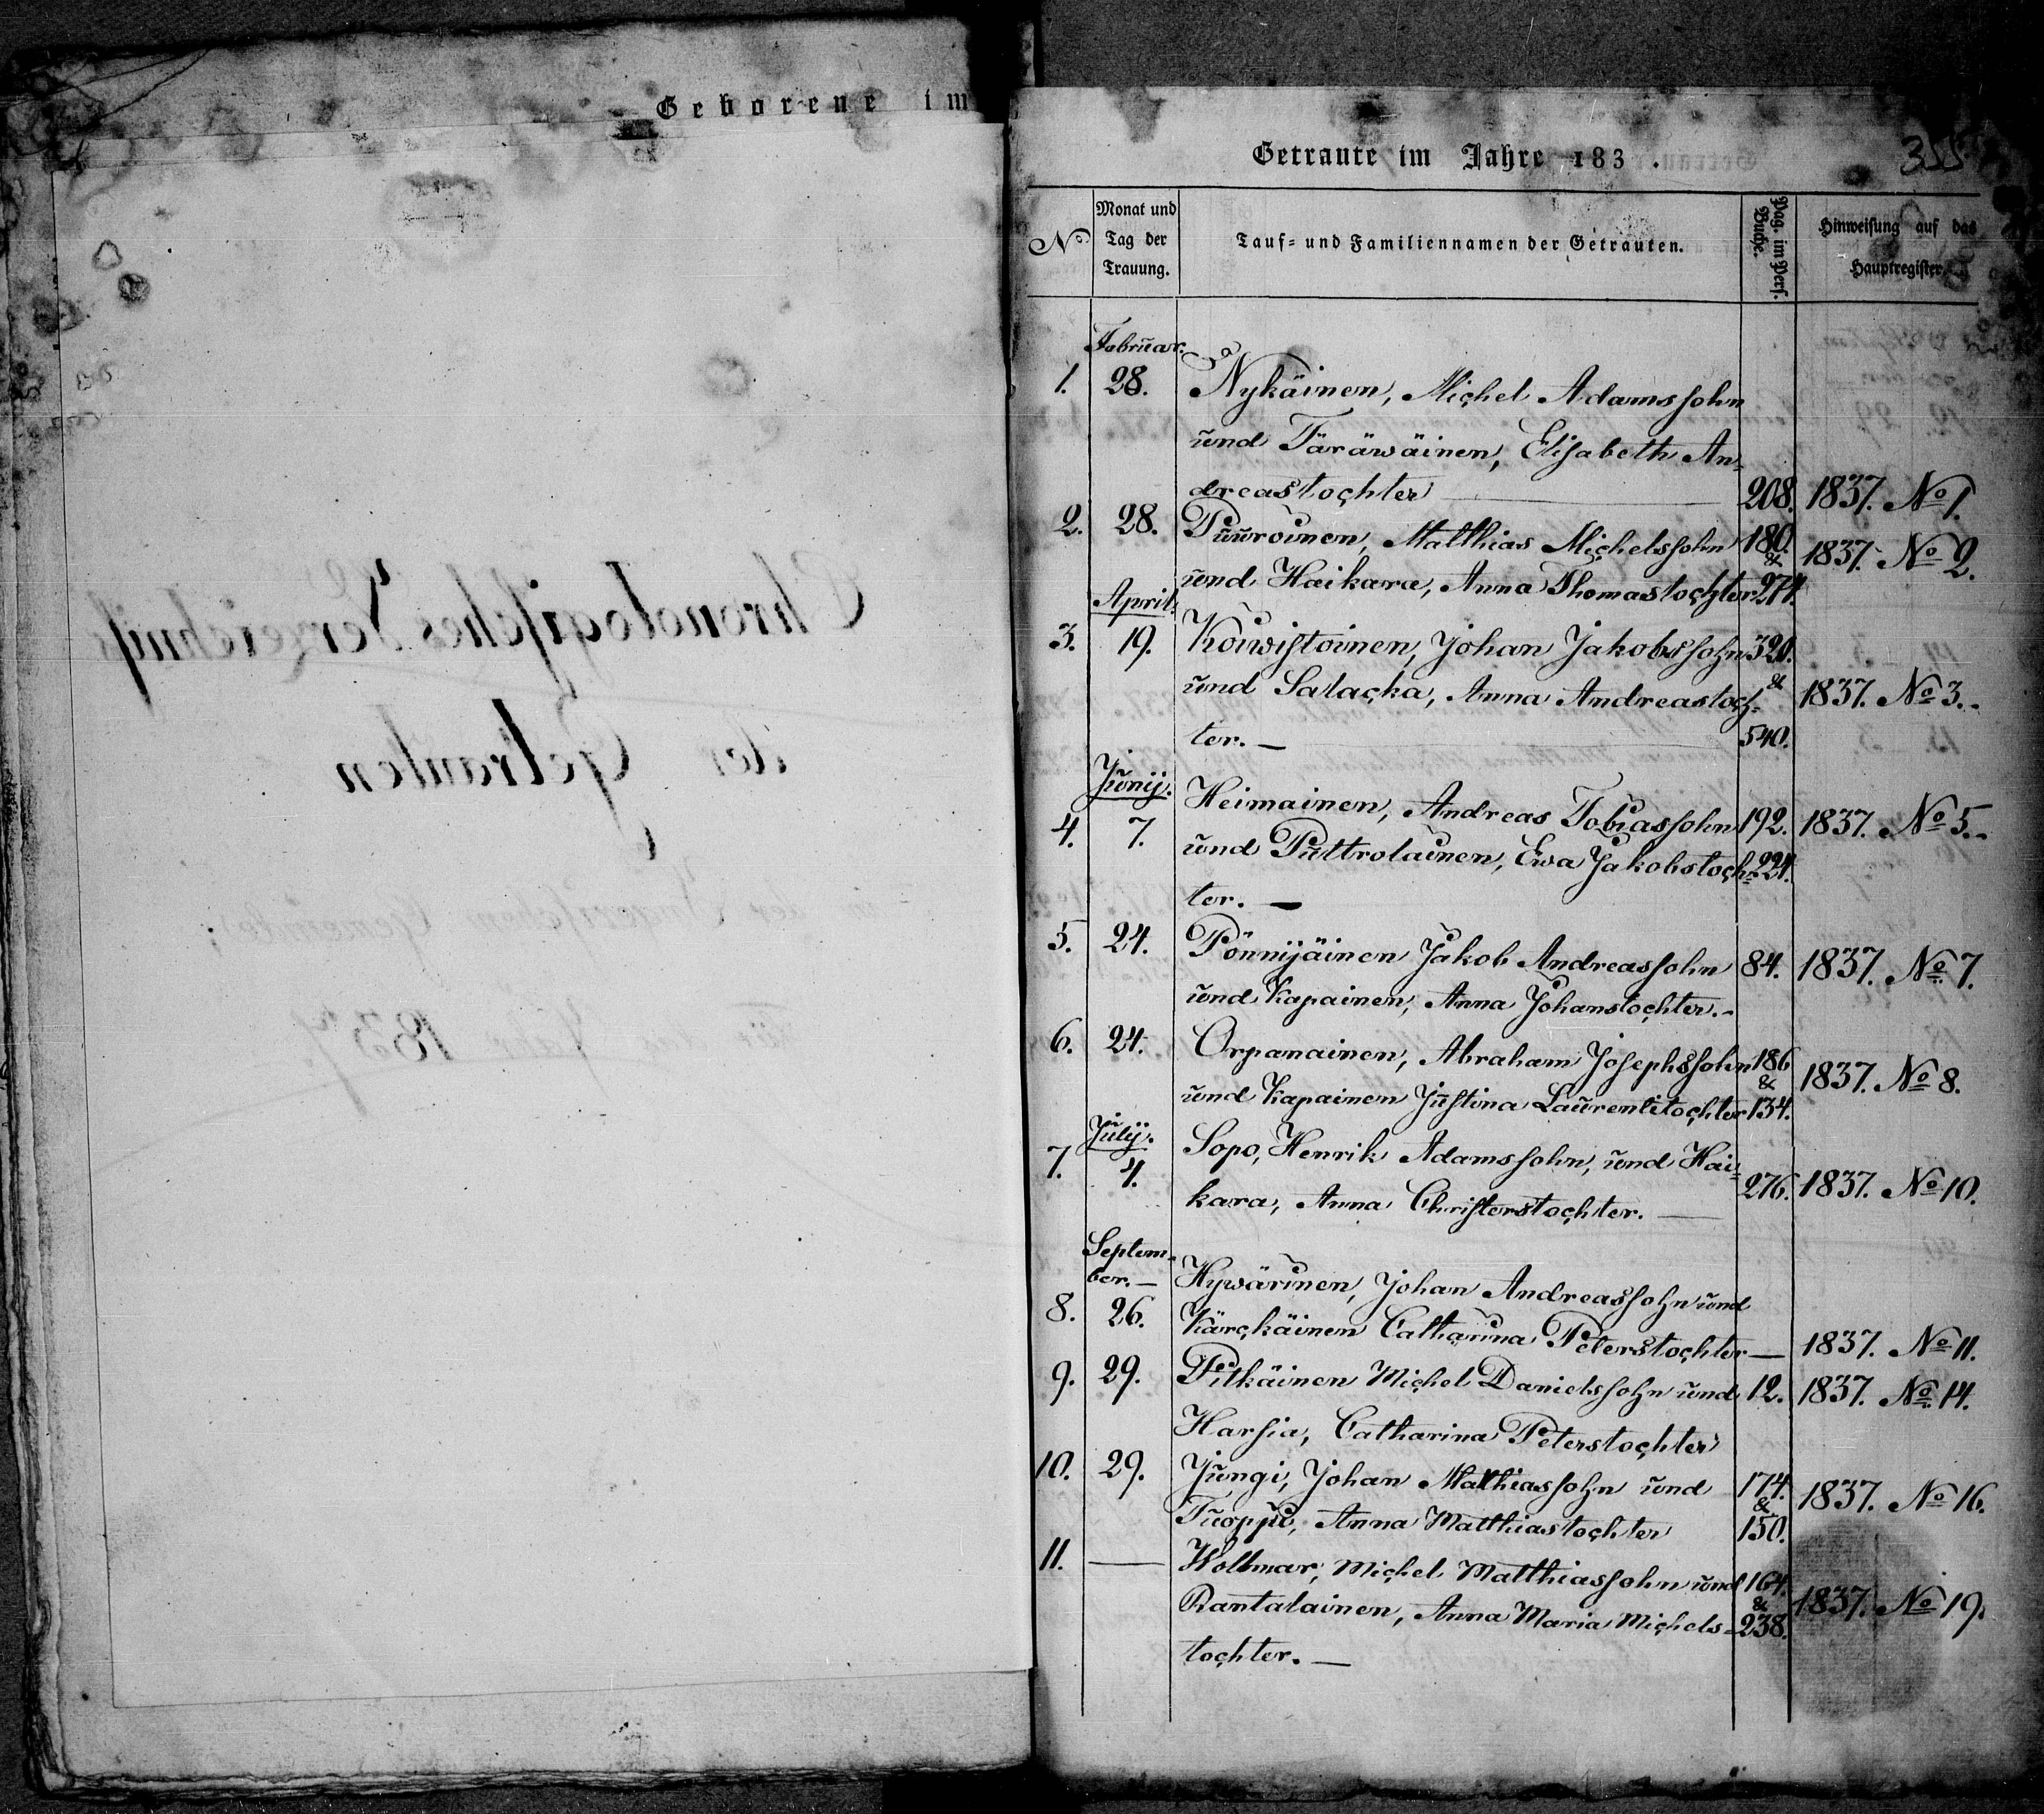 Geborene im
Chronologisches Verzeichniß
der Getrauten
in der Ingrischen Gemeinde;
für das Jahr 1837
Getraute im Jahre 183 .
355
No
Monat und
Tag der
Trauung.
Tauf= und Familiennamen der Getrauten.
Pag. im Pers.
Buche.
Hinweisung auf das
Hauptregister.
Februar.
1. 28. Nykäinen, Michel Adamssohn
und Täräwäinen, Elisabeth An=
dreastochter — 208. 1837. No 1.
2. 28. Puuroinen, Matthias Michelssohn 180. & 1837. No 2.
und Haikara, Anna Thomastochter 274.
April.
3. 19. Koiwistoinen, Johan Jakobssohn 320.
und Salacka, Anna Andreastoch= & 1837. No 3.-
ter. — 540.
Junij.
4. 7. Heimainen, Andreas Tobiassohn 192. 1837. No 5.-
und Puttrolainen, Ewa Jakobstoch= 221.
ter. —
5. 24. Pönnijäinen Jakob Andreassohn 84. 1837. No 7.
und Kapainen, Anna Johanstochter.-
6. 24. Orpanainen, Abraham Josephssohn 186 & 1837. No 8.
und Kapainen Justina Laurentitochter 134.
Julij.
7. 4. Sopo, Henrik Adamssohn, und Hai=
kara, Anna Christerstochter. — 276. 1837. No 10.
Septem=
ber. —
8. 26. Hywärinen, Johan Andreassohn und
Kärckäinen Catharina Peterstochter — 1837. No 11.
9. 29. Pitkäinen Michel Danielssohn und 12. 1837. No 14.
Harsia, Catharina Peterstochter
10. 29. Jungi, Johan Matthiassohn und 174. & 1837. No 16.
Tuoppu, Anna Matthiastochter 150.
11. — Wollmar, Michel Matthiassohn und 164. &
Rantalainen, Anna Maria Michels= 238. 1837. No 19.
tochter. —